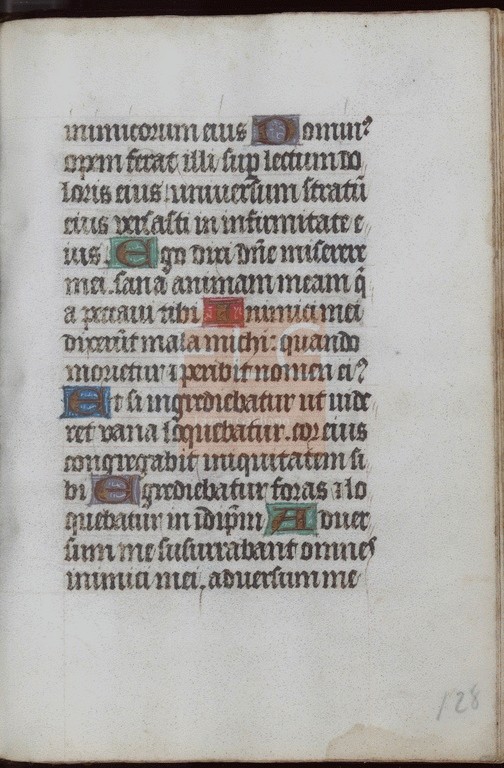 inimicorum eius Dominꝰ
opem ferat illi sup̱ lectum do
loris eius uniuersum stratū
eius versasti in infirmitate e
ius. Ego dixi dn̄e miserere
mei. sana animam meam q̄
a peccaui tibi Inimici mei
dixerūt mala michi: quando
morietur ⁊ peribit nomen eiꝰ
Et si ingrediebatur ut uide
ret vana loquebatur. cor eius
congregabit iniquitatem si
bi Egrediebatur foras ⁊ lo
quebatur in idip̄m Aduer
sum me susurrabant omnes
inimici mei. aduersum me
128